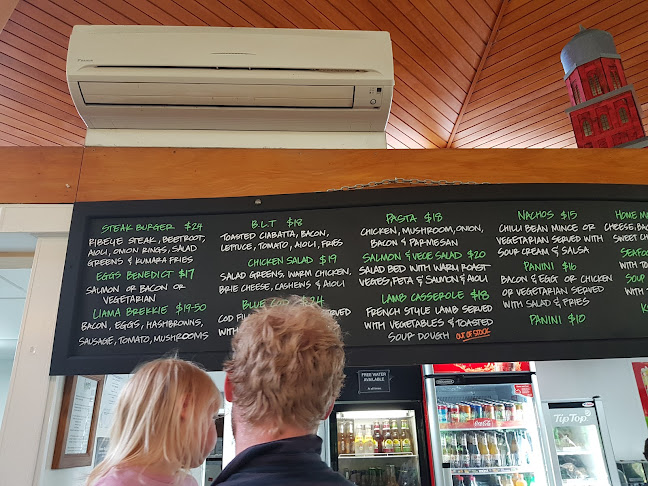 STEAK BURGER $24
RIBEYE STEAK, BEETROOT,
AIOLI, ONION RINGS, SALAD
GREENS & KUMARA FRIES
EGGS BENEDICT $17
SALMON OR BACON OR
VEGETARIAN
LIAMA BREKKIE $19-50
BACON, EGGS, HASHBROWNS,
SAUSAGE, TOMATO, MUSHROOMS
B.L.T $18
TOASTED CIABATTA, BACON,
LETTUCE, TOMATO, AIOLI, FRIES
CHICKEN SALAD $19
SALAD GREENS, WARM CHICKEN,
BRIE CHEESE, CASHEWS & AIOLI
BLUE COD $24
COD SERVED
WITH
PASTA $18
CHICKEN, MUSHROOM, ONION,
BACON & PARMESAN
SALMON & VEGE SALAD $20
SALAD BED WITH WARM ROAST
VEGES, FETA & SALMON & AIOLI
LAMB CASSEROLE $18
FRENCH STYLE LAMB SERVED
WITH VEGETABLES & TOASTED
SOUR DOUGH OUT OF STOCK
NACHOS $15
CHILLI BEAN MINCE OR
VEGETARIAN SERVED WITH
SOUR CREAM & SALSA
PANINI $16
BACON & EGG OR CHICKEN
OR VEGETARIAN SERVED
WITH SALAD & FRIES
PANINI $10
HOME
CHEESE, BAC
SWEET
SEAFO
WITH
SOUP
WITH
FREE WATER
AVAILABLE
Coca-Cola
TipTop